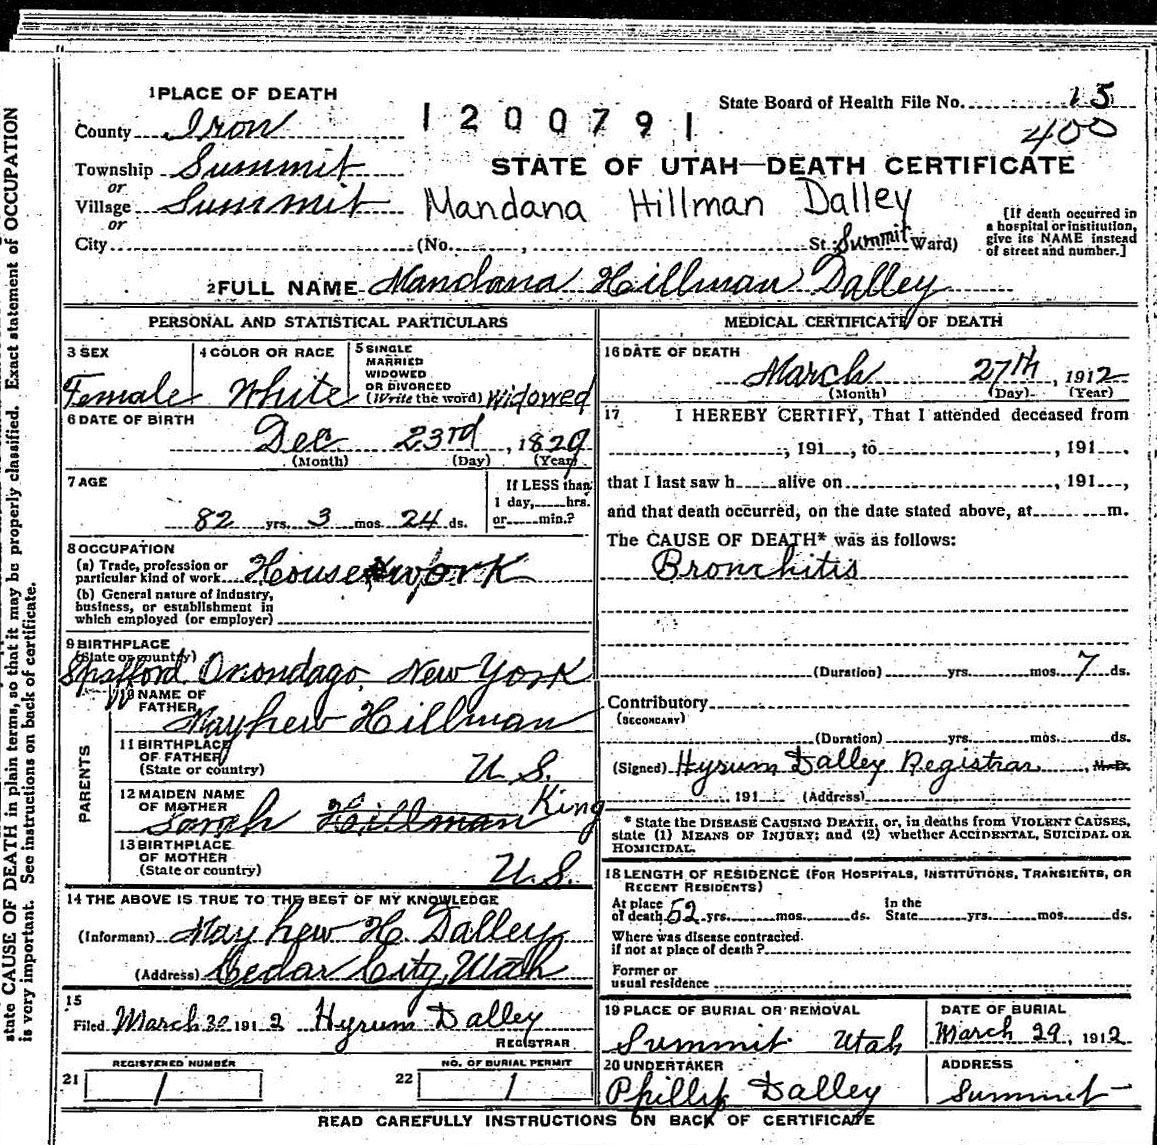 1 PLACE OF DEATH
State Board of Health File No. 15
County Iron
1200791
400
Township Summit
STATE OF UTAH—DEATH CERTIFICATE
or
Village Summit
Mandana Hillman Dalley
or
City (No. , St. Summit Ward)
[If death occurred in
a hospital or institution,
give its NAME instead
of street and number.]
2 FULL NAME Mandana Hillman Dalley
PERSONAL AND STATISTICAL PARTICULARS
3 SEX
Female
4 COLOR OR RACE
White
5 SINGLE
MARRIED
WIDOWED
OR DIVORCED
(Write the word) Widowed
6 DATE OF BIRTH
Dec 23rd, 1829
(Month) (Day) (Year)
7 AGE
82 yrs. 3 mos. 24 ds.
If LESS than
1 day, hrs.
or min.?
8 OCCUPATION
(a) Trade, profession or
particular kind of work Housework
(b) General nature of industry,
business, or establishment in
which employed (or employer)
9 BIRTHPLACE
(State or country)
Spafford, Onondago, New York
PARENTS
10 NAME OF
FATHER
Mayhew Hillman
11 BIRTHPLACE
OF FATHER
(State or country) U.S.
12 MAIDEN NAME
OF MOTHER
Sarah Hillman King
13 BIRTHPLACE
OF MOTHER
(State or country) U.S.
14 THE ABOVE IS TRUE TO THE BEST OF MY KNOWLEDGE
(Informant) Mayhew H. Dalley
(Address) Cedar City, Utah
15
Filed March 30 1912 Hyrum Dalley
REGISTRAR
REGISTERED NUMBER
21
NO. OF BURIAL PERMIT
22
MEDICAL CERTIFICATE OF DEATH
16 DATE OF DEATH
March 27th, 1912
(Month) (Day) (Year)
17 I HEREBY CERTIFY, That I attended deceased from
, 191 , to , 191 .
that I last saw h alive on , 191 ,
and that death occurred, on the date stated above, at m.
The CAUSE OF DEATH* was as follows:
Bronchitis
(Duration) yrs. mos. 7 ds.
Contributory
(SECONDARY)
(Duration) yrs. mos. ds.
(Signed) Hyrum Dalley Registrar, M.D.
191 (Address)
* State the DISEASE CAUSING DEATH, or, in deaths from VIOLENT CAUSES,
state (1) MEANS OF INJURY; and (2) whether ACCIDENTAL, SUICIDAL OR
HOMICIDAL.
18 LENGTH OF RESIDENCE (FOR HOSPITALS, INSTITUTIONS, TRANSIENTS, OR
RECENT RESIDENTS)
At place In the
of death 52 yrs. mos. ds. State yrs. mos. ds.
Where was disease contracted
if not at place of death?
Former or
usual residence
19 PLACE OF BURIAL OR REMOVAL
Summit Utah
DATE OF BURIAL
March 29, 1912
20 UNDERTAKER
Phillip Dalley
ADDRESS
Summit
READ CAREFULLY INSTRUCTIONS ON BACK OF CERTIFICATE
state CAUSE OF DEATH in plain terms, so that it may be properly classified. Exact statement of OCCUPATION
is very important. See instructions on back of certificate.